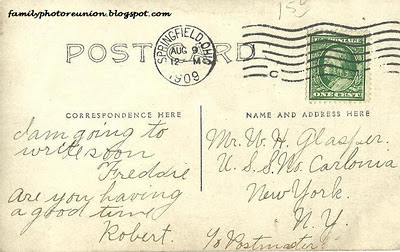 familyphotoreunion.blogspot.com
15¢
POST CARD
SPRINGFIELD, OHIO
AUG 9
12-M
1909
C
ONE CENT
CORRESPONDENCE HERE
NAME AND ADDRESS HERE
I am going to
write soon
Freddie
Are you having
a good time
Robert.
Mr. W. H. Glasser
U. S. S. Carlonia
New York.
N. Y.
c/o Postmaster